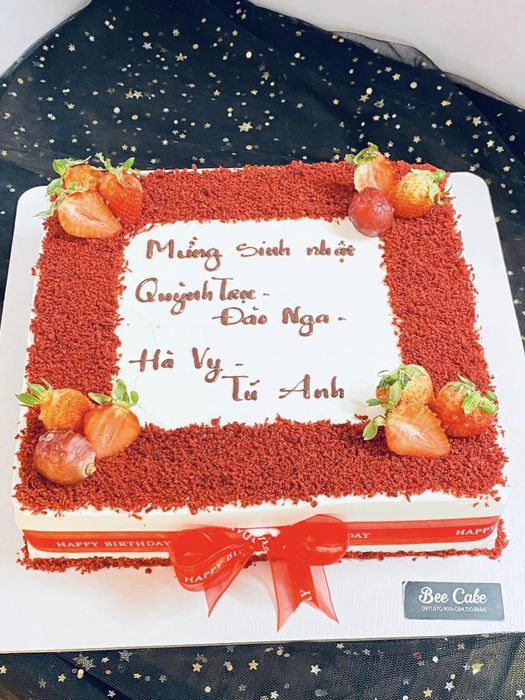 Mừng sinh nhật
Quỳnh Trac -
Đào Nga -
Hà Vy -
Tú Anh
HAPPY BIRTHDAY
HAPPY
DAY
HAPPY
Bee Cake
0911.670.909-084.310.8686